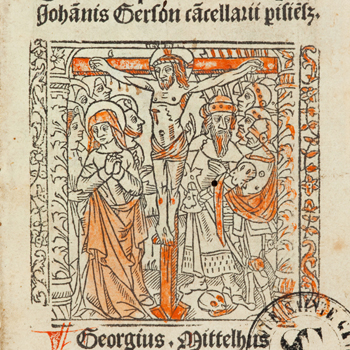 Johãnis Gersõn cãcellarii pisiẽſz.
Georgius. Mittelhus